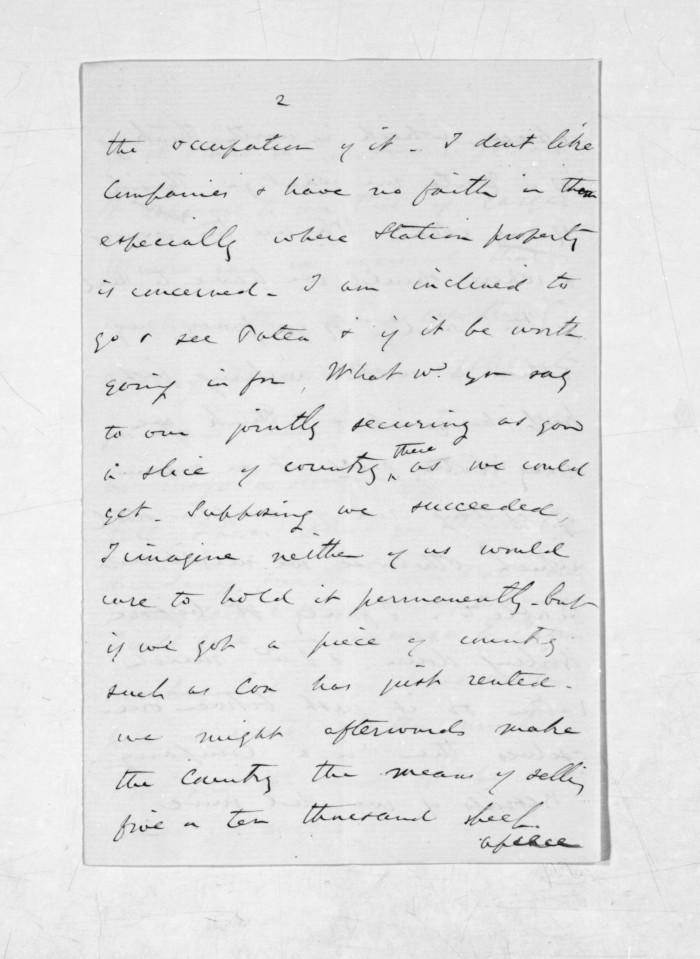 2
the occupation of it - I dont like
Companies & have no faith in them
especially where Station property
is concerned - I am inclined to
go & see Patea & if it be worth
going in for, What wd. you say
to our jointly securing as good
a slice of country there as we could
get - Supposing we succeeded,
I imagine neither of us would
care to hold it permanently - but
if we got a piece of country
such as Cox has just rented -
we might afterwards make
the Country the means of selling
five or ten thousand sheep